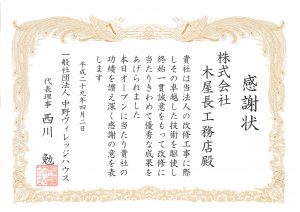 感謝状
株式会社
木屋長工務店殿
貴社は当法人の改修工事に際
しその卓越した技術を駆使し
終始一貫誠意をもって改修に
当たりきわめて優秀な成果を
あげられました
本日オープンに当たり貴社の
功績を讃え深く感謝の意を表
します
平成二十九年四月二日
一般社団法人 中野ヴィレッジハウス
代表理事 西川 勉